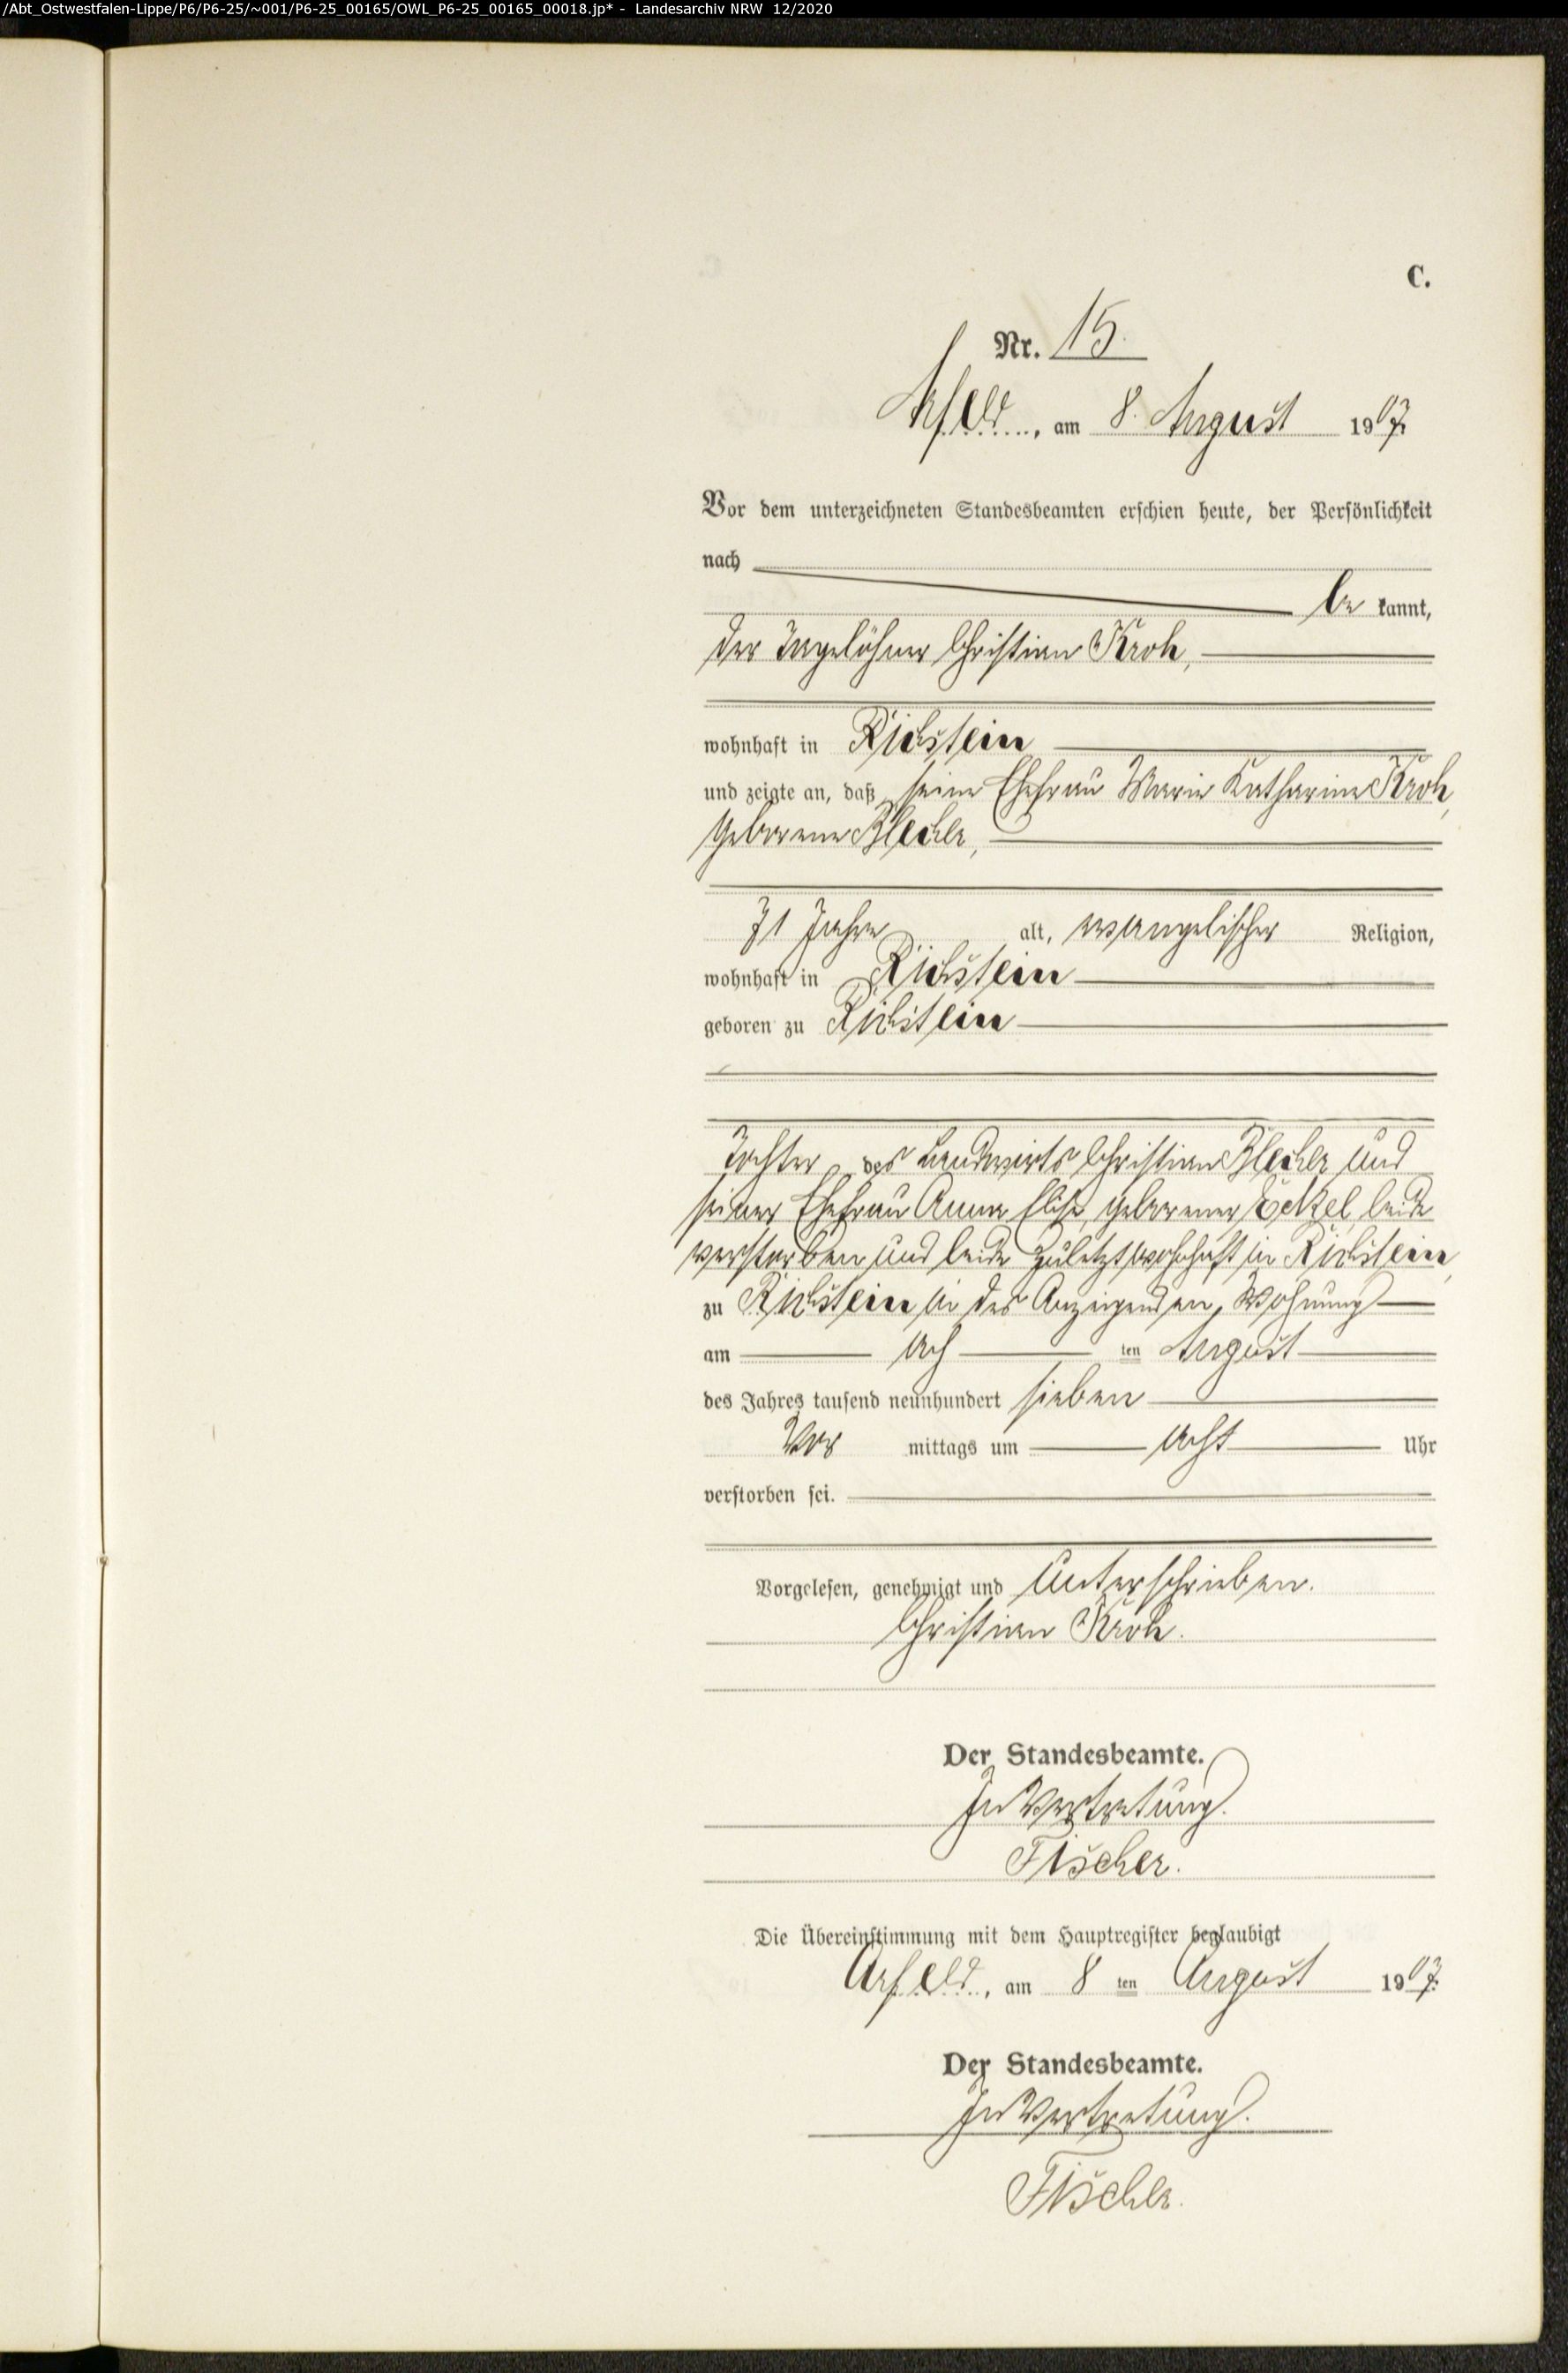 /Abt_Ostwestfalen-Lippe/P6/P6-25/~001/P6-25_00165/OWL_P6-25_00165_00018.jp* - Landesarchiv NRW 12/2020
C.
Nr. 15.
Arfeld, am 8. August 1907.
Vor dem unterzeichneten Standesbeamten erschien heute, der Persönlichkeit
nach
be kannt,
der Tagelöhner Christian Kroh,
wohnhaft in Richstein
und zeigte an, daß seine Ehefrau Marie Katharine Kroh,
geborene Blecher,
71 Jahre alt, evangelischer Religion,
wohnhaft in Richstein
geboren zu Richstein
Tochter des Landwirts Christian Blecher und
seiner Ehefrau Anna Elise, geborener Eckel, beide
verstorben und beide zuletzt wohnhaft in Richstein,
zu Richstein in des Anzeigenden Wohnung
am ach ten August
des Jahres tausend neunhundert sieben
Vor mittags um acht Uhr
verstorben sei.
Vorgelesen, genehmigt und unterschrieben.
Christian Kroh.
Der Standesbeamte.
In Vertretung.
Fischer.
Die Übereinstimmung mit dem Hauptregister beglaubigt
Arfeld, am 8 ten August 1907.
Der Standesbeamte.
In Vertretung.
Fischer.